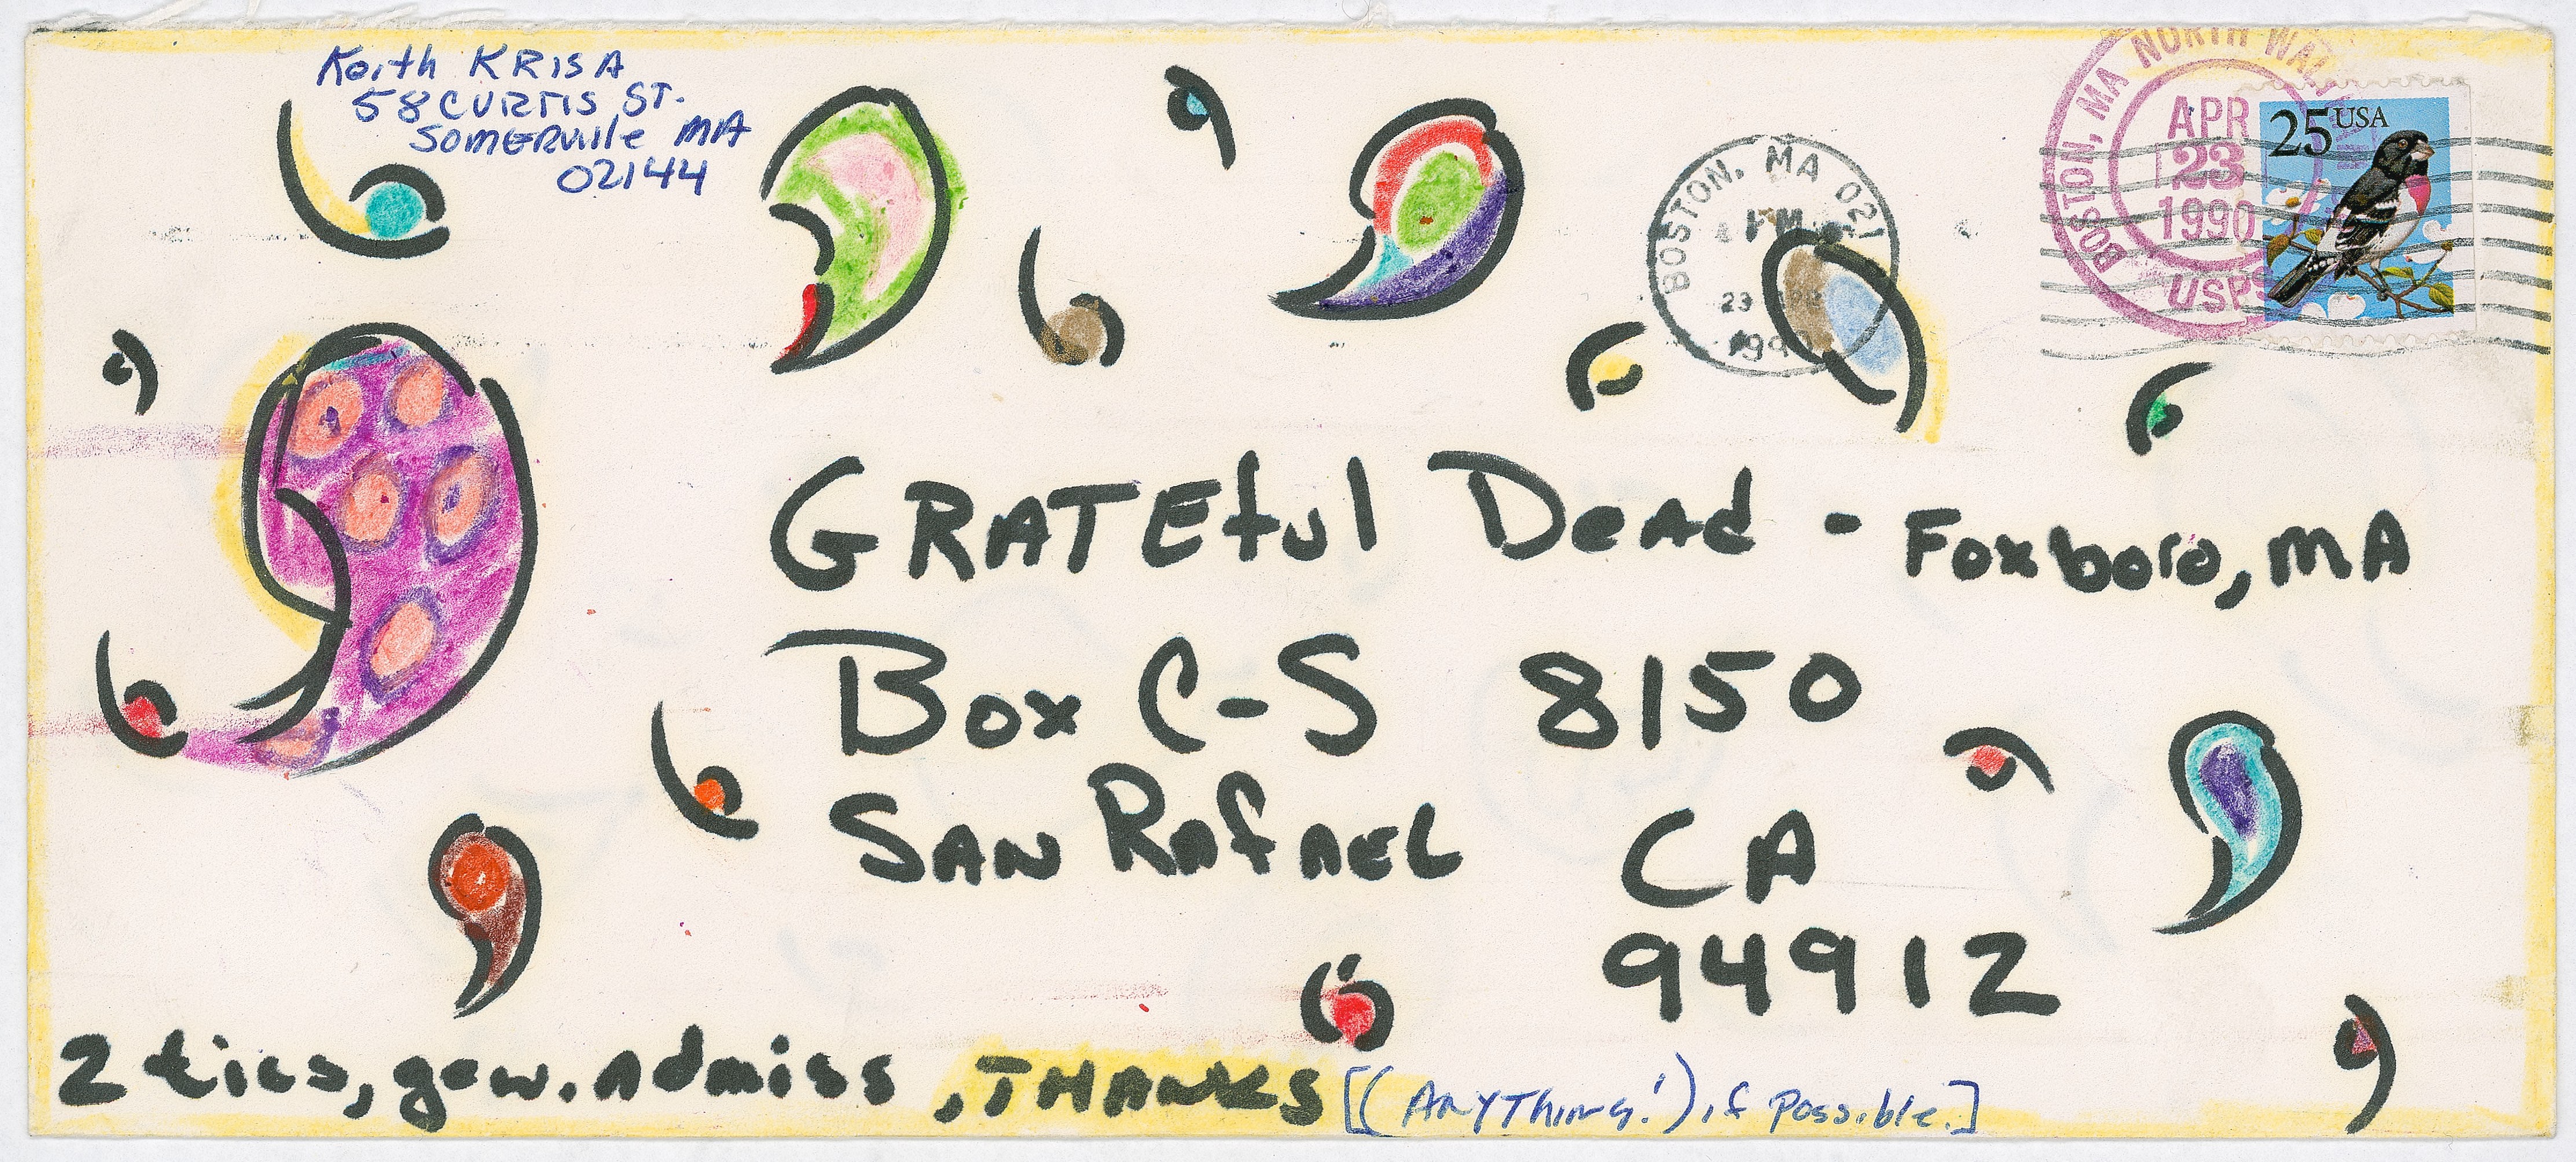 Keith KRISA
58 CURTIS ST.
SOMERville MA
02144
BOSTON, MA NORTH
APR
23
1990
USPS
25 USA
BOSTON, MA 021
PM
23
1990
GRATEful Dead - Foxboro, MA
Box C-S 8150
SAN RafaEL CA
94912
2 tics, gen. admiss, THANKS [(ANYThing!) if possible.]